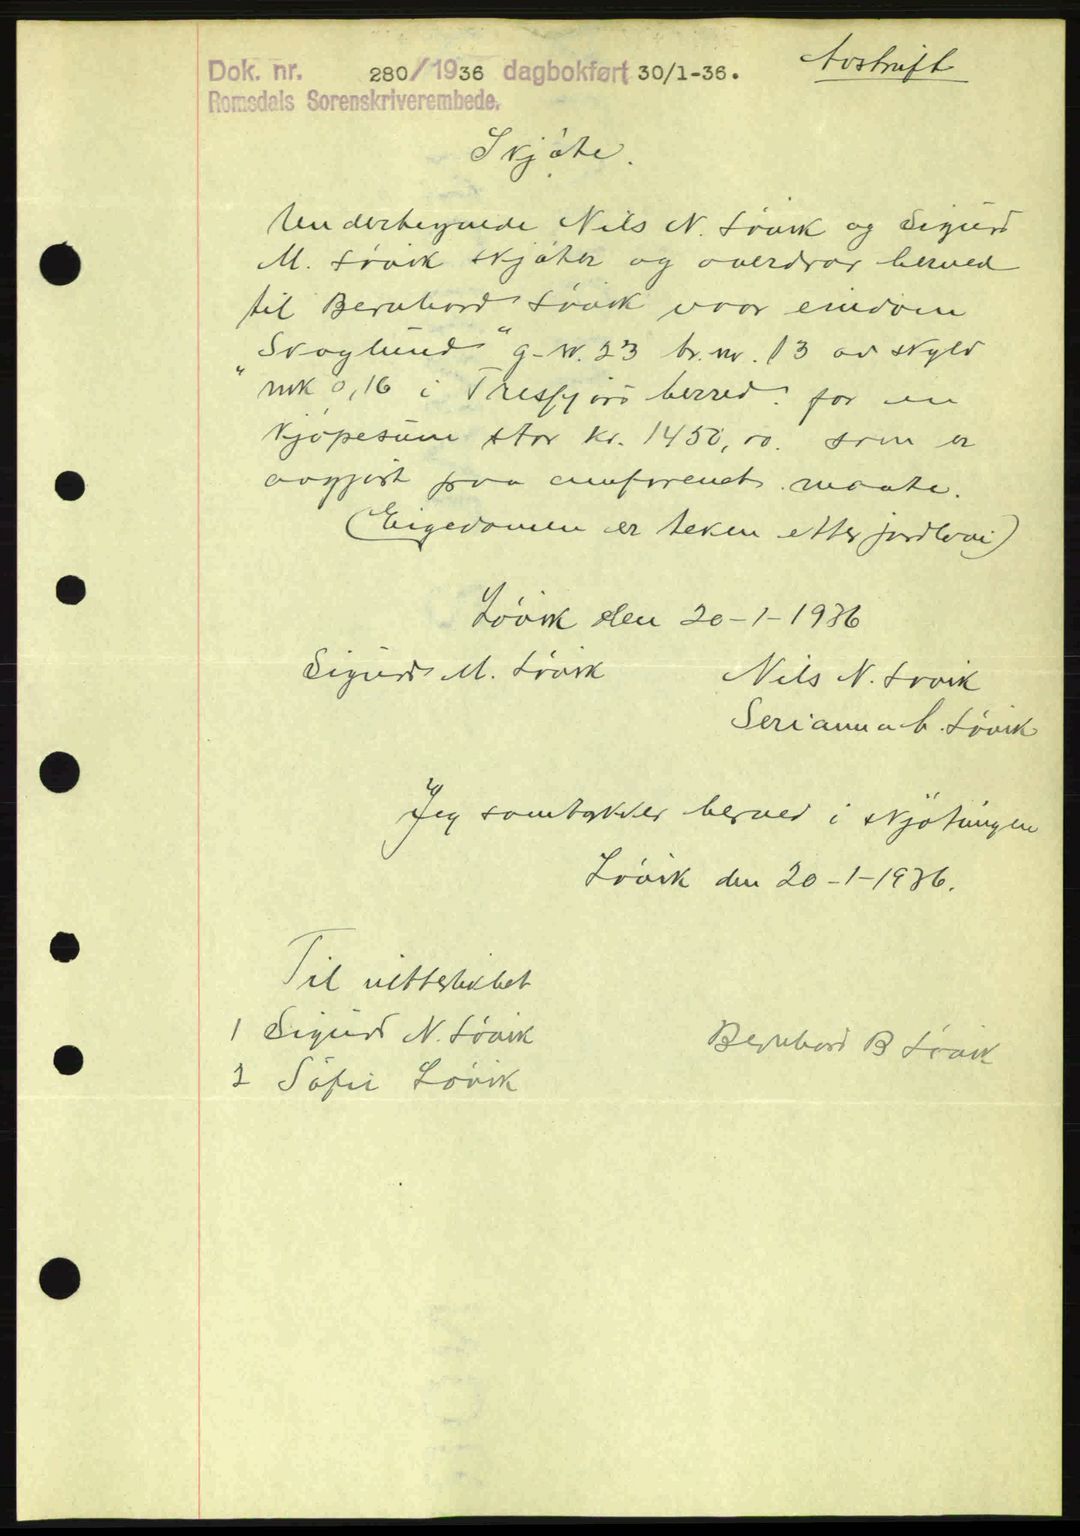 Dok. nr. 280/1936 dagbokført 30/1-36.
Romsdals Sorenskriverembede.
Avskrift
Skjøte.
Undertegnede Nils N. Løvik og Sigurd
M. Løvik skjøter og overdrar herved
til Bernhard Løvik vaar eindom
"Skoglund" g-nr. 23 br. nr. 13 av skyld
mk 0,16 i Tresfjord herred. for en
kjøpesum stor kr. 1450,00. som er
avgjort paa omforenet maate.
(Eigedomen er teken etter jordlovi)
Løvik den 20-1-1936
Sigurd M. Løvik Nils N. Løvik
Serianna b. Løvik
Jeg samtykker herved i skjøtingen
Løvik den 20-1-1936.
Til vitterlighet
1 Sigurd N. Løvik Bernhard B Løvik
2 Sofie Løvik